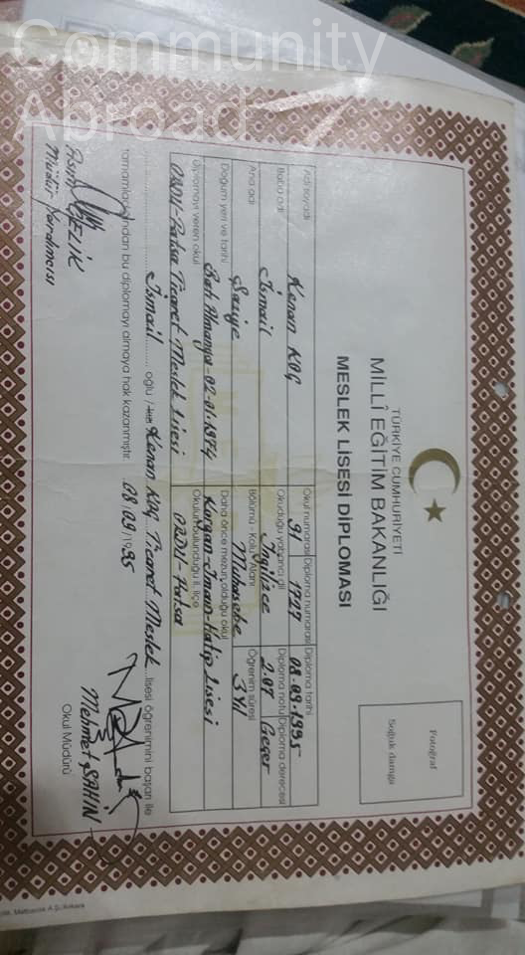 Community
Abroad
TÜRKİYE CUMHURİYETİ
MİLLÎ EĞİTİM BAKANLIĞI
MESLEK LİSESİ DİPLOMASI
Fotoğraf
Soğuk damga
Adı soyadı Kenan KOÇ
Okul numarası 91
Diploma numarası 1727
Diploma tarihi 08-09-1995
Baba adı İsmail
Okuduğu yabancı dil İngilizce
Diploma notu 2.07
Diploma derecesi Geçer
Ana adı Saniye
Bölümü - Kolu Alanı Muhasebe
Öğrenim süresi 3 Yıl
Doğum yeri ve tarihi Batı Almanya-02-01-1974
Daha önce mezun olduğu okul Korgan-İmam-Hatip Lisesi
Diplomayı veren okul ORDU-Fatsa Ticaret Meslek Lisesi
Okulun bulunduğu il, ilçe ORDU-Fatsa
İsmail oğlu / kızı Kenan KOÇ Ticaret Meslek lisesi öğrenimini başarı ile
tamamladığından bu diplomayı almaya hak kazanmıştır. 08/09/1995
Asım ÇELİK
Müdür Yardımcısı
Mehmet ŞAHİN
Okul Müdürü
Matbaacılık A.Ş./Ankara